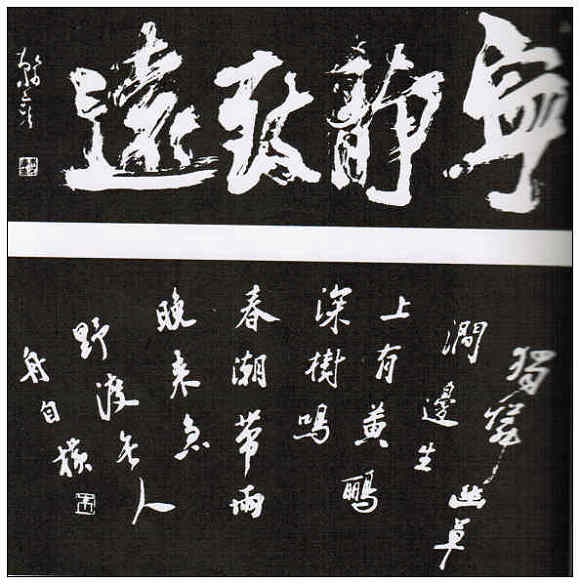 寧靜致遠
獨憐幽草
澗邊生
上有黃鸝
深樹鳴
春潮帶雨
晚來急
野渡無人
舟自橫